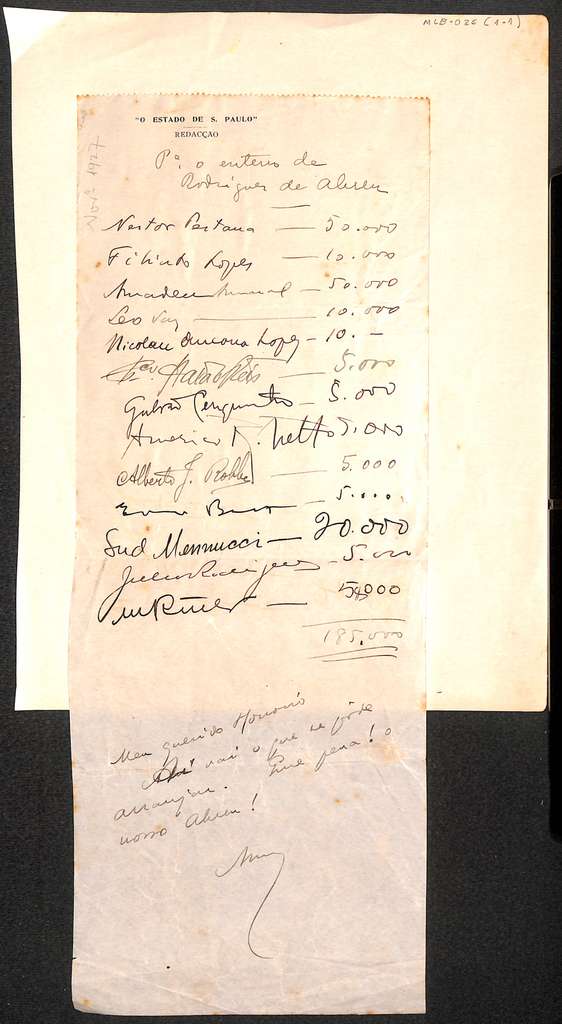 MLB-026 (1-1)
"O ESTADO DE S. PAULO"
REDACÇÃO
Novº 1927
Pª. o enterro de
Rodrigues de Abreu
Nestor Pestana — 50.000
Filindo Lopes — 10.000
Amadeu Amaral — 50.000
Leo Vaz — 10.000
Nicolau Ancona Lopez — 10. —
— 5.000
Galvão Cerquinho — 5.000
Americo R. Netto 5.000
Alberto J. Robbe — 5.000
— 5.000
Sud Mennucci — 20.000
Julio Rodrigues — 5.000
— 5.000
185.000
Meu querido Honorio
Ahi vai o que se pôde
arranjar. Que pena! o
nosso Abreu!